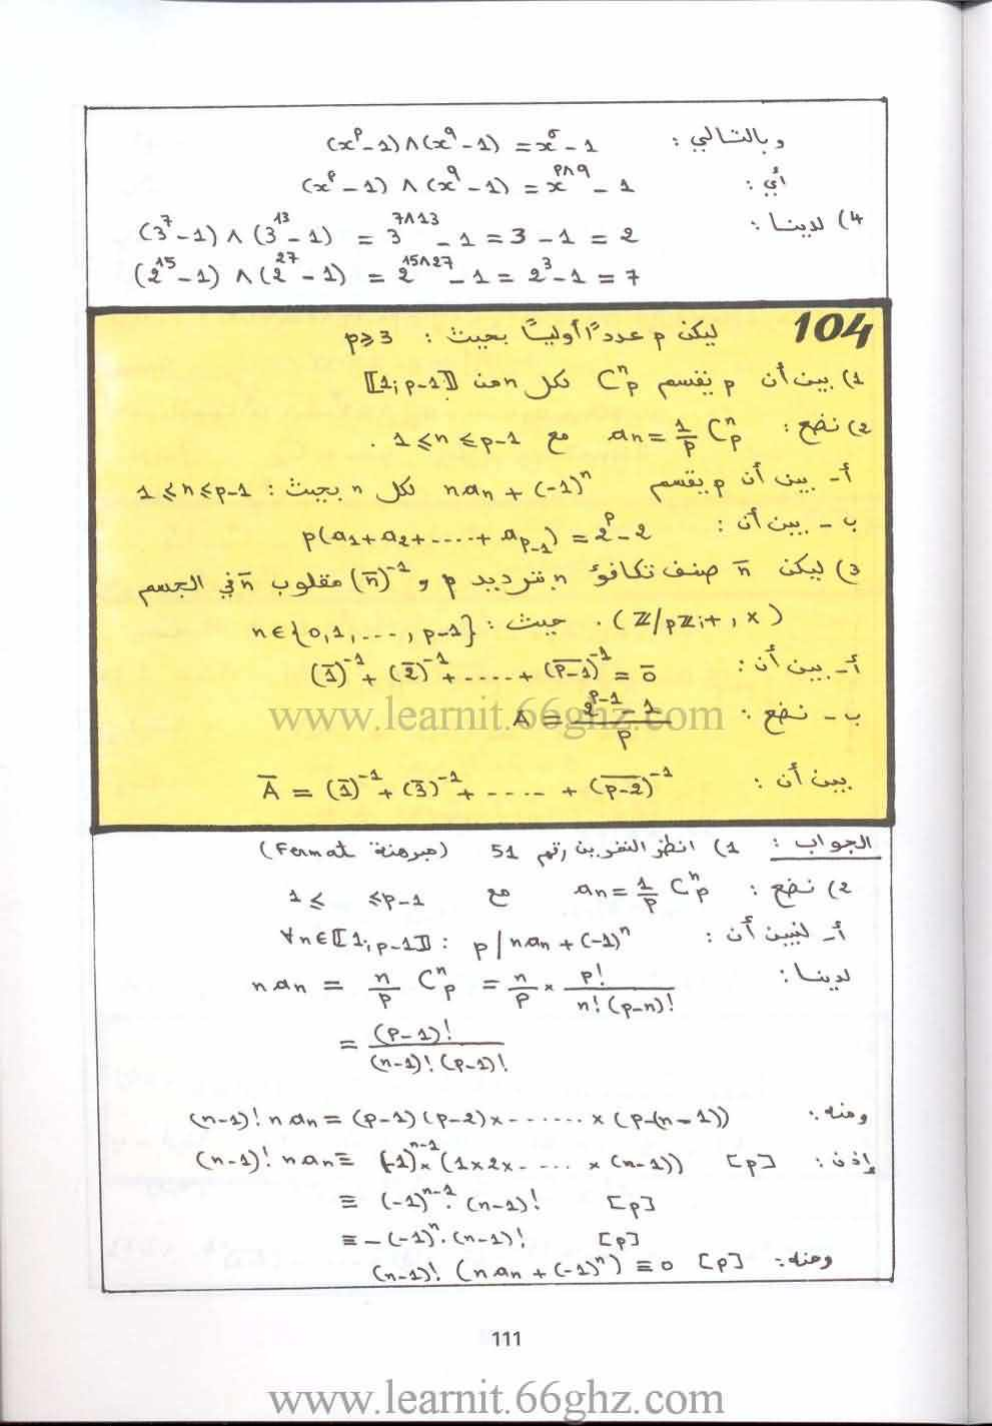 وبالتالي : (x^p - 1) ∧ (x^q - 1) = x^δ - 1
أي : (x^p - 1) ∧ (x^q - 1) = x^(p∧q) - 1
4) لدينا : (3^7 - 1) ∧ (3^13 - 1) = 3^(7∧13) - 1 = 3 - 1 = 2
(2^15 - 1) ∧ (2^27 - 1) = 2^(15∧27) - 1 = 2^3 - 1 = 7
104 ليكن p عددًا أوليًا بحيث : p ⩾ 3
1) بين أن p يقسم C_p^n لكل n من ⟦1; p-1⟧
2) نضع : a_n = 1/p C_p^n مع 1 ⩽ n ⩽ p-1 .
أ- بين أن p يقسم n a_n + (-1)^n لكل n بحيث : 1 ⩽ n ⩽ p-1
ب - بين أن : p(a_1 + a_2 + .... + a_(p-1)) = 2^p - 2
3) ليكن n̄ صنف تكافؤ n بترديد p و (n̄)^-1 مقلوب n̄ في الجسم
(Z/pZ, +, ×) . حيث : n ∈ {0, 1, ..., p-1}
أ- بين أن : (1̄)^-1 + (2̄)^-1 + ..... + (p-1‾)^-1 = 0̄
ب - نضع : A = (2^(p-1) - 1)/p
www.learnit.66ghz.com
بين أن : Ā = (1̄)^-1 + (3̄)^-1 + .... + (p-2‾)^-1
الجواب : 1) انظر التمرين رقم 51 (مبرهنة Fermat)
2) نضع : a_n = 1/p C_p^n مع 1 ⩽ ⩽ p-1
أ- لنبين أن : ∀n ∈ ⟦1; p-1⟧ : p / n a_n + (-1)^n
لدينا : n a_n = n/p C_p^n = n/p × p!/(n! (p-n)!)
= (p-1)!/((n-1)! (p-1)!)
ومنه : (n-1)! n a_n = (p-1)(p-2) × ....... × (p-(n-1))
إذن : (n-1)! n a_n ≡ (-1)^(n-1) × (1×2× .... × (n-1)) [p]
≡ (-1)^(n-1) . (n-1)! [p]
≡ -(-1)^n . (n-1)! [p]
ومنه : (n-1)! (n a_n + (-1)^n) ≡ 0 [p]
111
www.learnit.66ghz.com